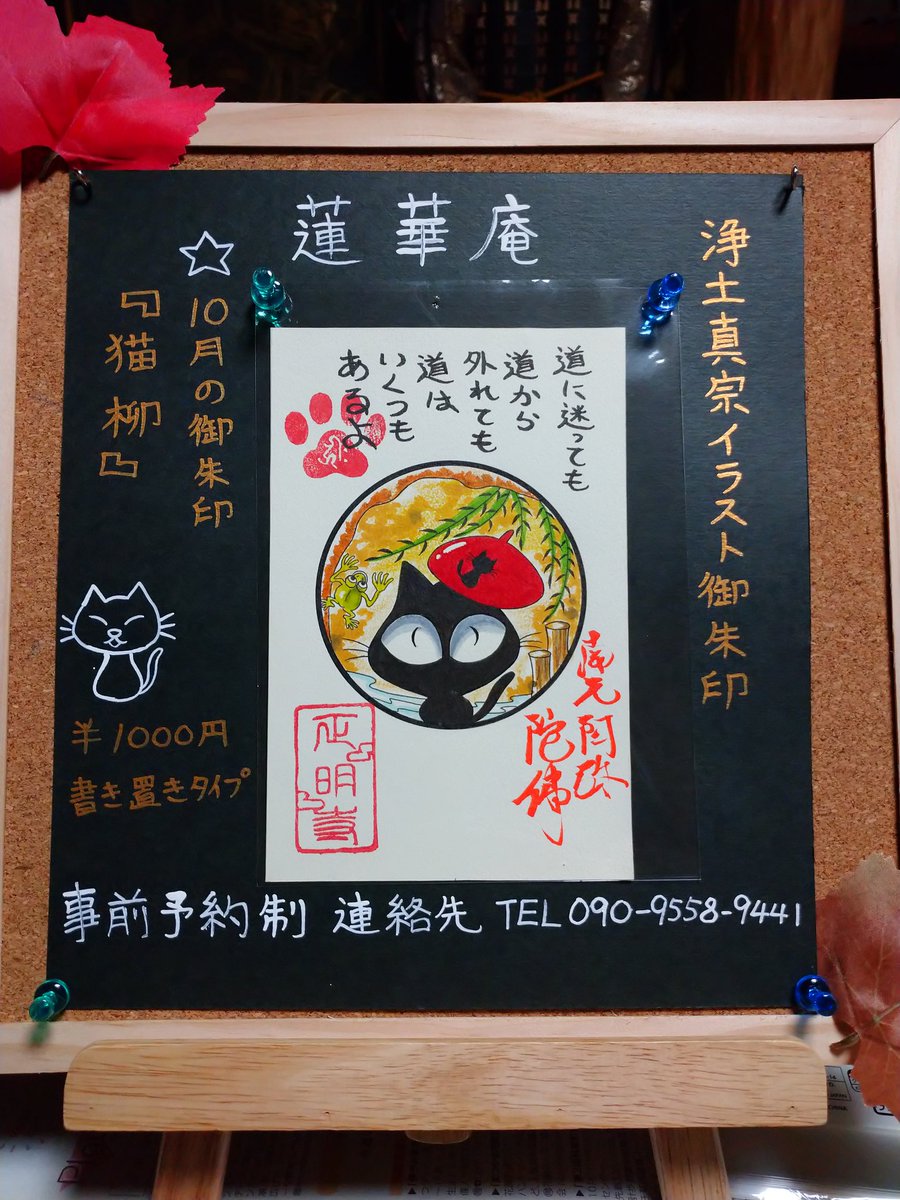 蓮華庵
浄土真宗イラスト御朱印
☆10月の御朱印
『猫柳』
¥1000円
書き置きタイプ
道に迷っても
道から
外れても
道は
いくつも
あるよ
正明寺
事前予約制 連絡先 TEL 090-9558-9441